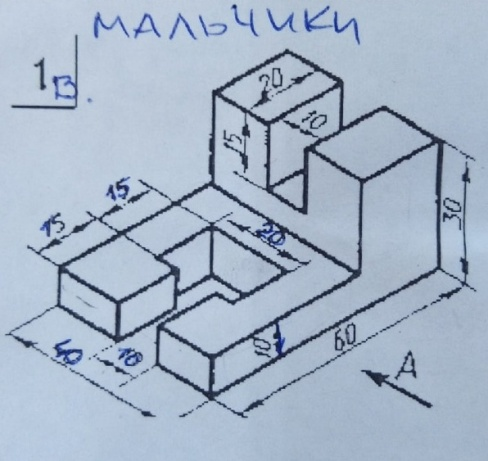 МАЛЬЧИКИ
1В.
20
10
15
15
15
20
30
10
60
50
10
А